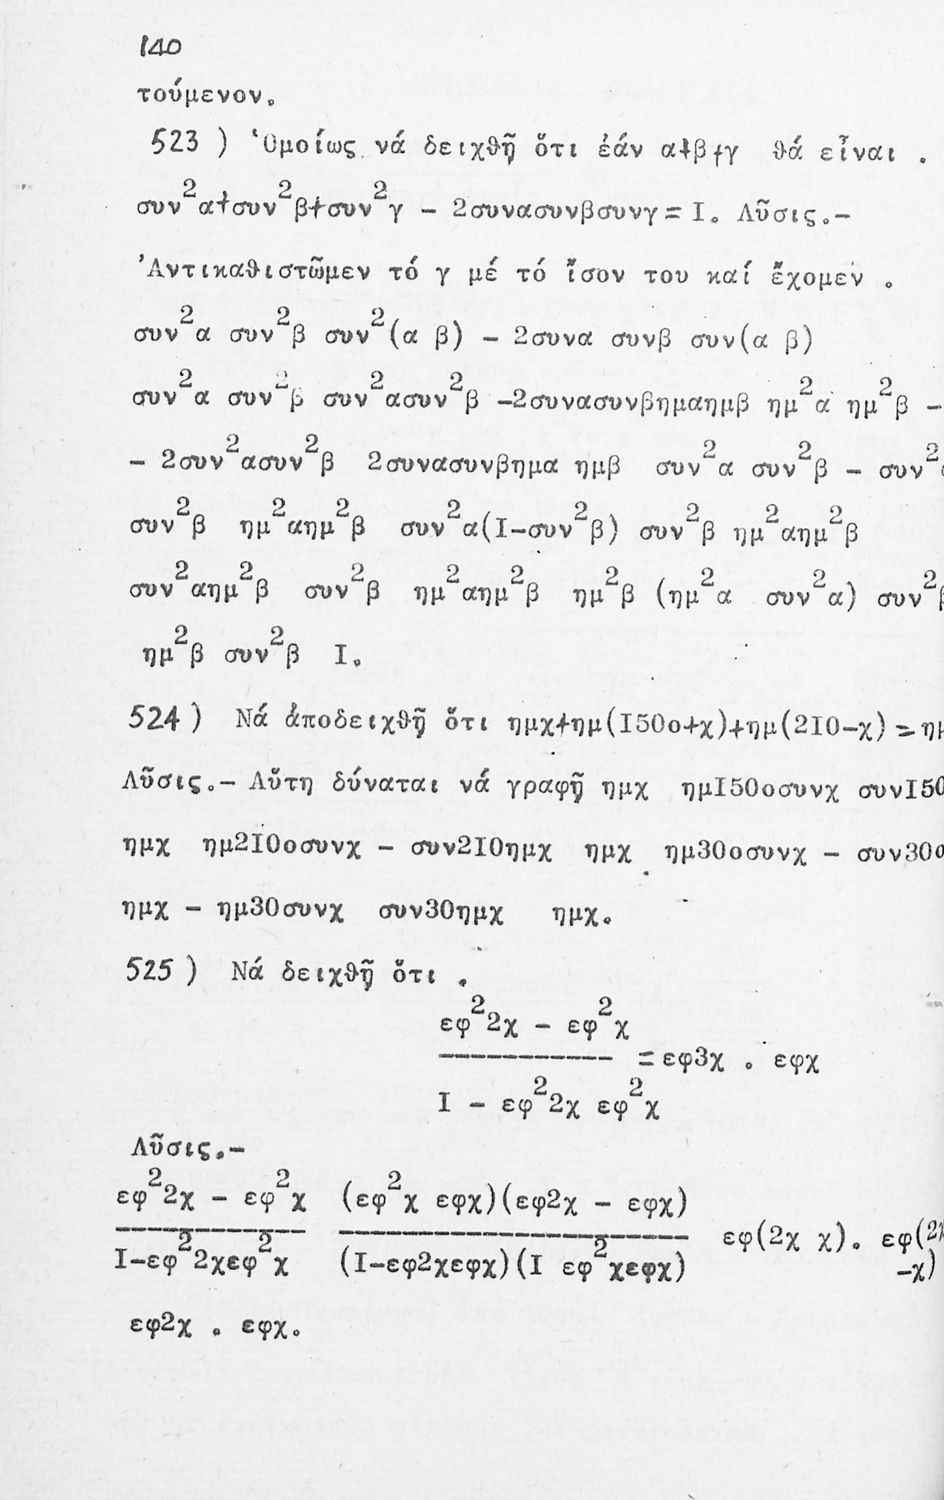 140
τούμενον.
523 ) Ὁμοίως νά δειχθῇ ὅτι ἐάν α+β+γ θά εἶναι .
συν²α+συν²β+συν²γ - 2συνασυνβσυνγ = I. Λῦσις.-
Ἀντικαθιστῶμεν τό γ μέ τό ἴσον του καί ἔχομεν .
συν²α συν²β συν²(α β) - 2συνα συνβ συν(α β)
συν²α συν²β συν²ασυν²β -2συνασυνβημαημβ ημ²α ημ²β -
- 2συν²ασυν²β 2συνασυνβημα ημβ συν²α συν²β - συν²
συν²β ημ²αημ²β συν²α(I-συν²β) συν²β ημ²αημ²β
συν²αημ²β συν²β ημ²αημ²β ημ²β (ημ²α συν²α) συν²β
ημ²β συν²β I.
524 ) Νά ἀποδειχθῇ ὅτι ημχ+ημ(I50ο+χ)+ημ(2I0-χ) = ημ
Λῦσις.- Αὕτη δύναται νά γραφῇ ημχ ημI50οσυνχ συνI50
ημχ ημ2I0οσυνχ - συν2I0ημχ ημχ ημ30οσυνχ - συν30ο
ημχ - ημ30συνχ συν30ημχ ημχ.
525 ) Νά δειχθῇ ὅτι .
εφ²2χ - εφ²χ
----------- = εφ3χ . εφχ
I - εφ²2χ εφ²χ
Λῦσις.-
εφ²2χ - εφ²χ (εφ²χ εφχ)(εφ2χ - εφχ)
------------ ---------------------- εφ(2χ χ). εφ(2χ
I-εφ²2χεφ²χ (I-εφ2χεφχ)(I εφ²χεφχ) -χ)
εφ2χ . εφχ.